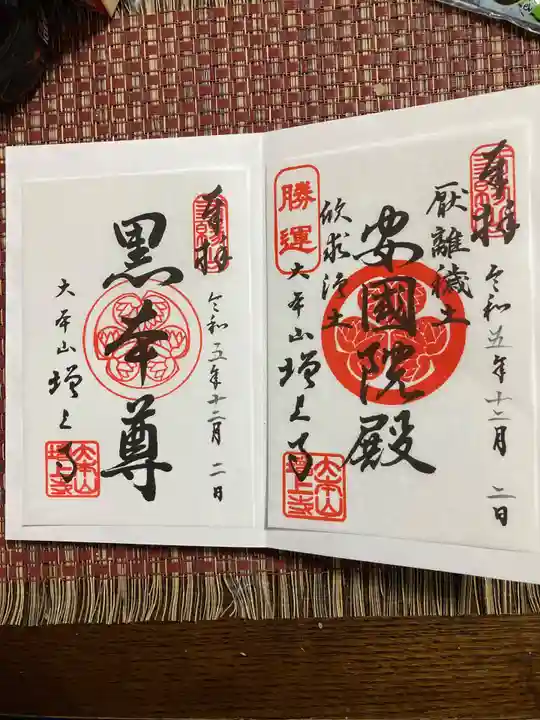 奉拝
厭離穢土
令和五年十二月二日
安國院殿
勝運
欣求浄土
大本山増上寺
大本山
増上寺
奉拝
令和五年十二月二日
黒本尊
大本山増上寺
大本山
増上寺